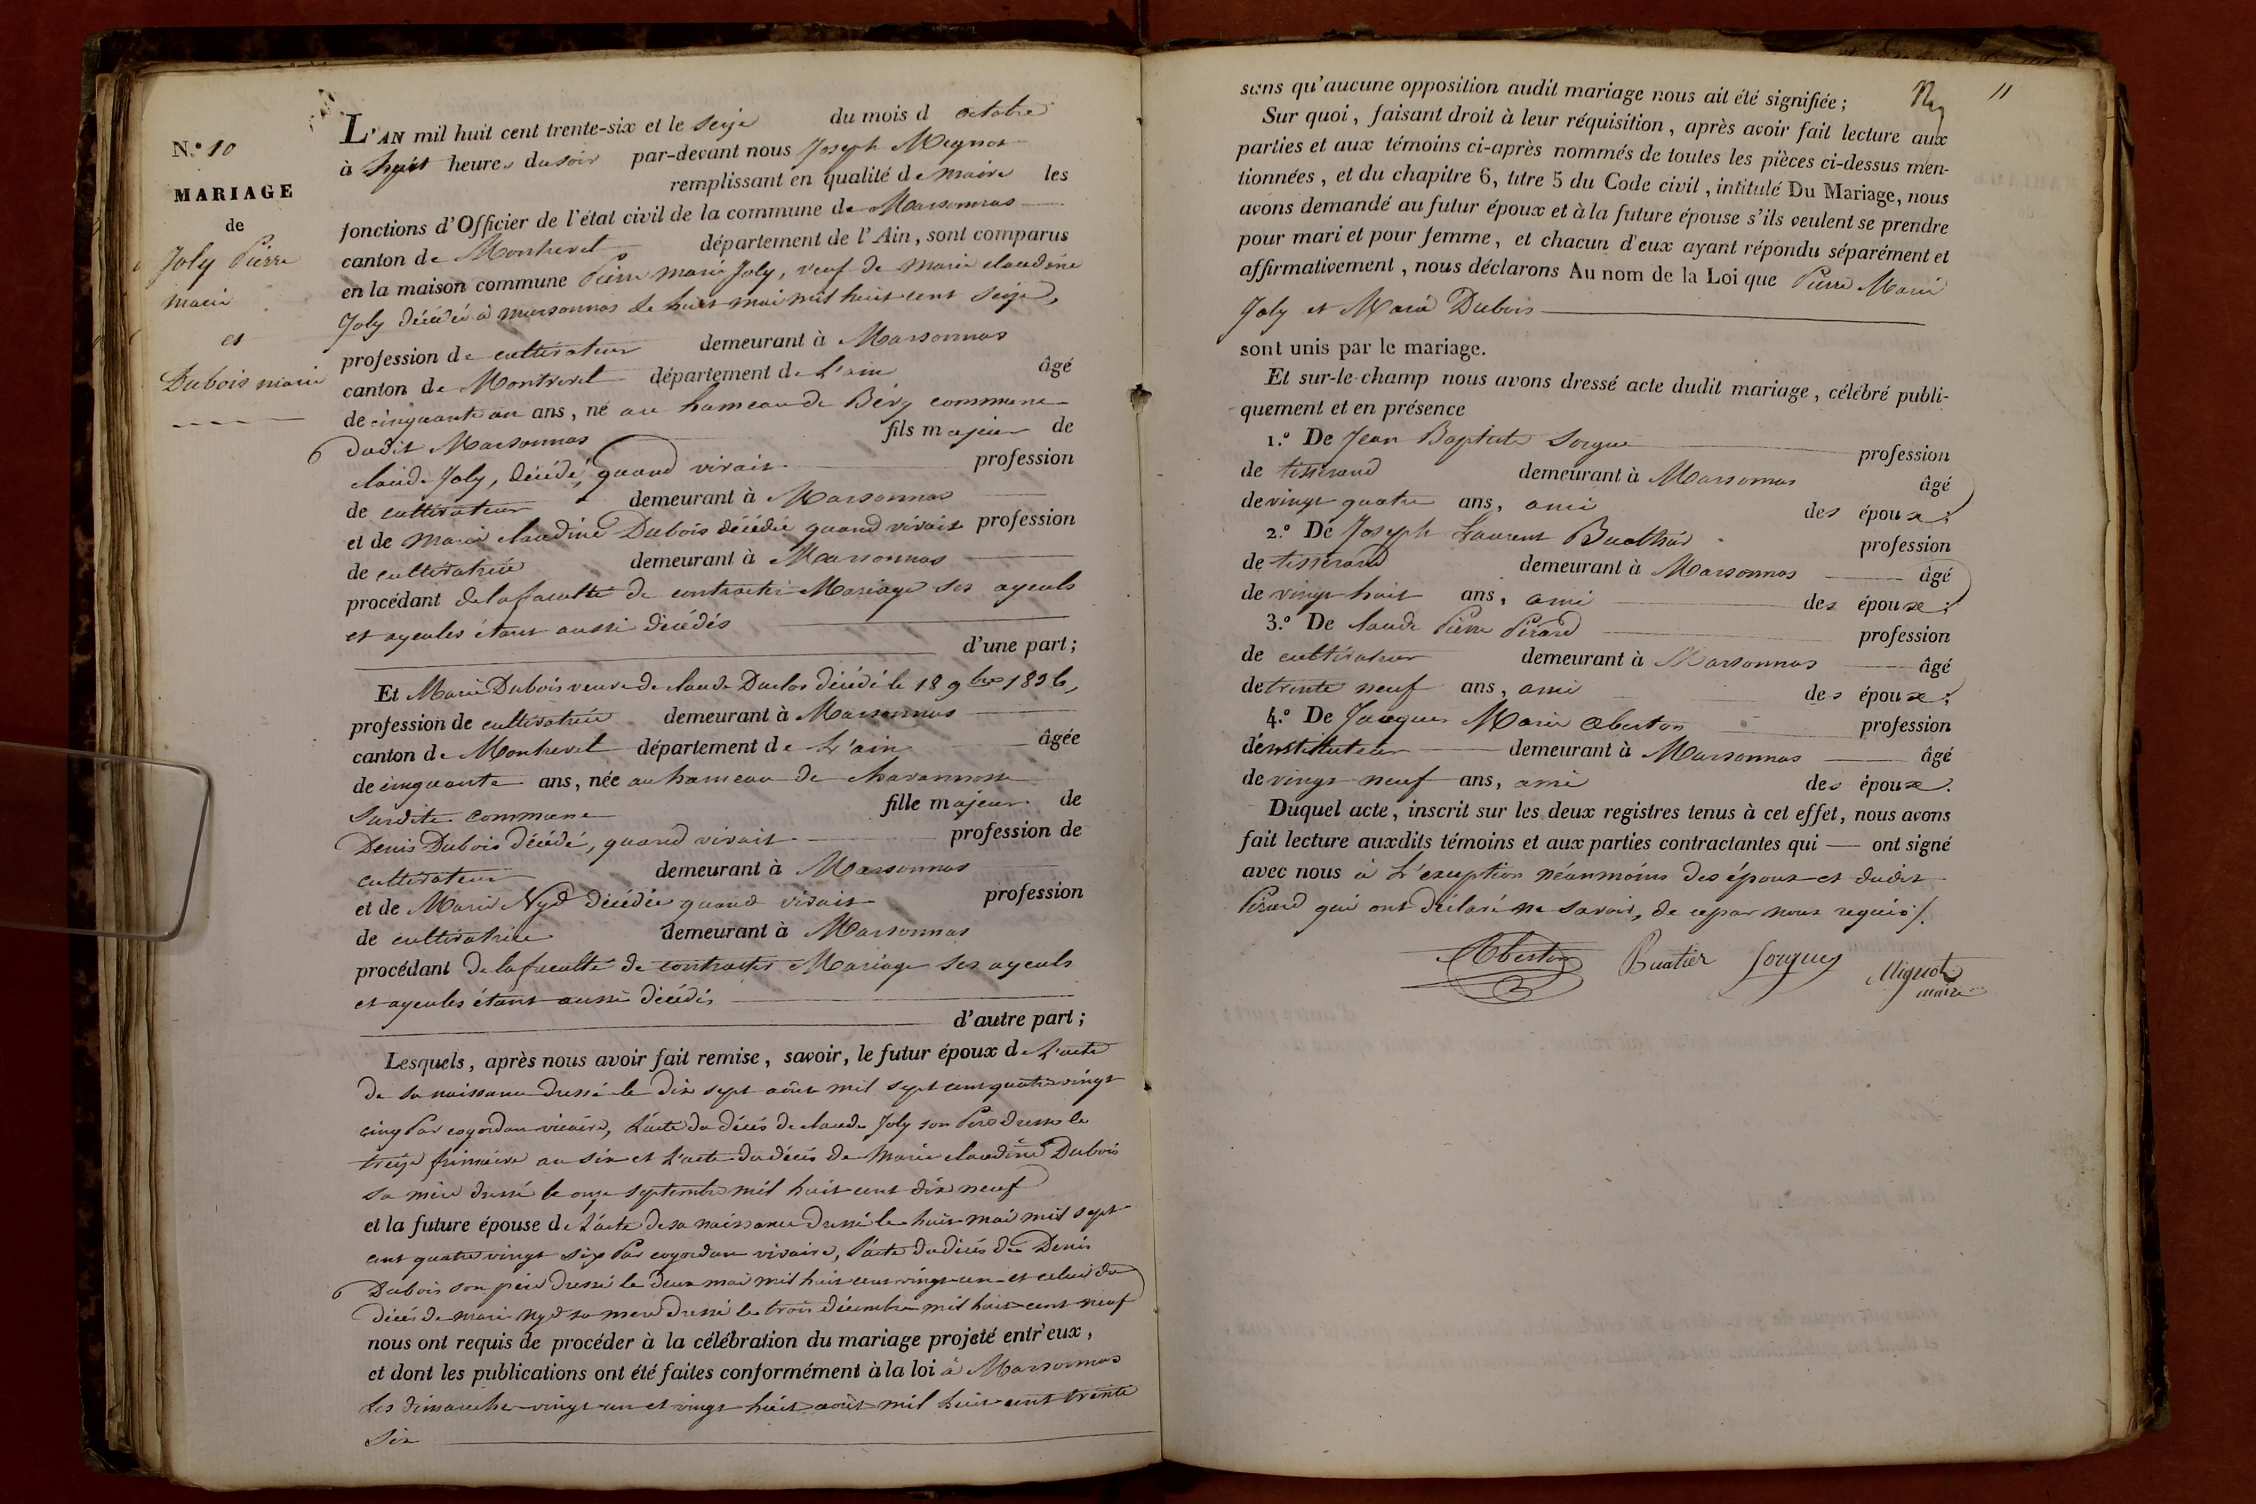 N.º 10
MARIAGE
de
Joly Pierre
marie
et
Dubois marie
L'AN mil huit cent trente-six et le seize du mois d octobre
à huit heures du soir par-devant nous Joseph Mignot
remplissant en qualité de maire les
fonctions d'Officier de l'état civil de la commune de Marsonnas
canton de Montrevel département de l'Ain, sont comparus
en la maison commune Pierre marie Joly, veuf de marie claudine
Joly décédée à marsonnas le huit mai mil huit cent seize,
profession de cultivateur demeurant à Marsonnas
canton de Montrevel département de L'ain âgé
de cinquante un ans, né au hameau de Béry commune
dudit Marsonnas fils majeur de
claude Joly, décédé, quand vivait profession
de cultivateur demeurant à Marsonnas
et de marie claudine Dubois décédée quand vivait profession
de cultivatrice demeurant à Marsonnas
procédant de la faculté de contracter Mariage ses ayeuls
et ayeules étant aussi décédés
d'une part;
Et Marie Dubois veuve de claude Duclos décédé le 18 9bre 1836,
profession de cultivatrice demeurant à Marsonnas
canton de Montrevel département de L'ain âgée
de cinquante ans, née au hameau de chavannosse
susdite commune fille majeure de
Denis Dubois décédé, quand vivait profession de
cultivateur demeurant à Marsonnas
et de Marie Nyd décédée quand vivait profession
de cultivatrice demeurant à Marsonnas
procédant de la faculté de contracter Mariage ses ayeuls
et ayeules étant aussi décédés
d'autre part;
Lesquels, après nous avoir fait remise, savoir, le futur époux de L'acte
de sa naissance dressé le dix sept août mil sept cent quatre vingt
cinq Par coyordan vicaire, L'acte du décès de claude Joly son Père dressé le
treize frimaire an six et L'acte du décès de Marie claudine Dubois
sa mère dressé le onze septembre mil huit cent dix neuf
et la future épouse de L'acte de sa naissance dressé le huit mai mil sept
cent quatre vingt six Par coyordan vicaire, L'acte du décès de Denis
Dubois son père dressé le deux mai mil huit cent vingt un et celui du
décès de marie Nyd sa mère dressé le trois décembre mil huit cent neuf
nous ont requis de procéder à la célébration du mariage projeté entr'eux,
et dont les publications ont été faites conformément à la loi à Marsonnas
Les dimanches vingt un et vingt huit août mil huit cent trente
six
11
sans qu'aucune opposition audit mariage nous ait été signifiée;
Sur quoi, faisant droit à leur réquisition, après avoir fait lecture aux
parties et aux témoins ci-après nommés de toutes les pièces ci-dessus men-
tionnées, et du chapitre 6, titre 5 du Code civil, intitulé Du Mariage, nous
avons demandé au futur époux et à la future épouse s'ils veulent se prendre
pour mari et pour femme, et chacun d'eux ayant répondu séparément et
affirmativement, nous déclarons Au nom de la Loi que Pierre Marie
Joly et Marie Dubois
sont unis par le mariage.
Et sur-le-champ nous avons dressé acte dudit mariage, célébré publi-
quement et en présence
1.º De Jean Baptiste Sorgue profession
de tisserand demeurant à Marsonnas âgé
de vingt quatre ans, ami des époux;
2.º De Joseph Laurent Buathier profession
de tisserand demeurant à Marsonnas âgé
de vingt huit ans, ami des époux;
3.º De claude Pierre Pérard profession
de cultivateur demeurant à Marsonnas âgé
de trente neuf ans, ami des époux;
4.º De Jacques Marie Oberton profession
d'instituteur demeurant à Marsonnas âgé
de vingt neuf ans, ami des époux.
Duquel acte, inscrit sur les deux registres tenus à cet effet, nous avons
fait lecture auxdits témoins et aux parties contractantes qui ont signé
avec nous à L'exception néanmoins des époux et dudit
Pérard qui ont déclaré ne savoir, de ce par nous requis /.
Oberton Buatier Sorgues Mignot
maire